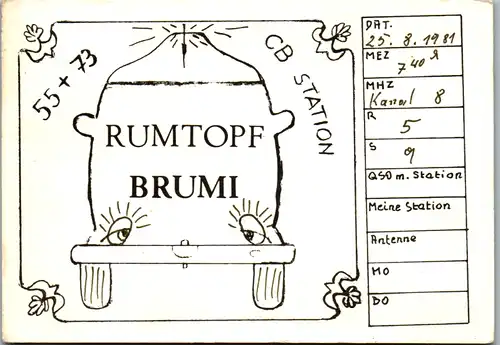 55 + 73
CB STATION
RUMTOPF
BRUMI
DAT.
25. 8. 1981
MEZ
7 40
MHZ
Kanal 8
R
5
S
9
QSO m. Station
Meine Station
Antenne
MO
DO